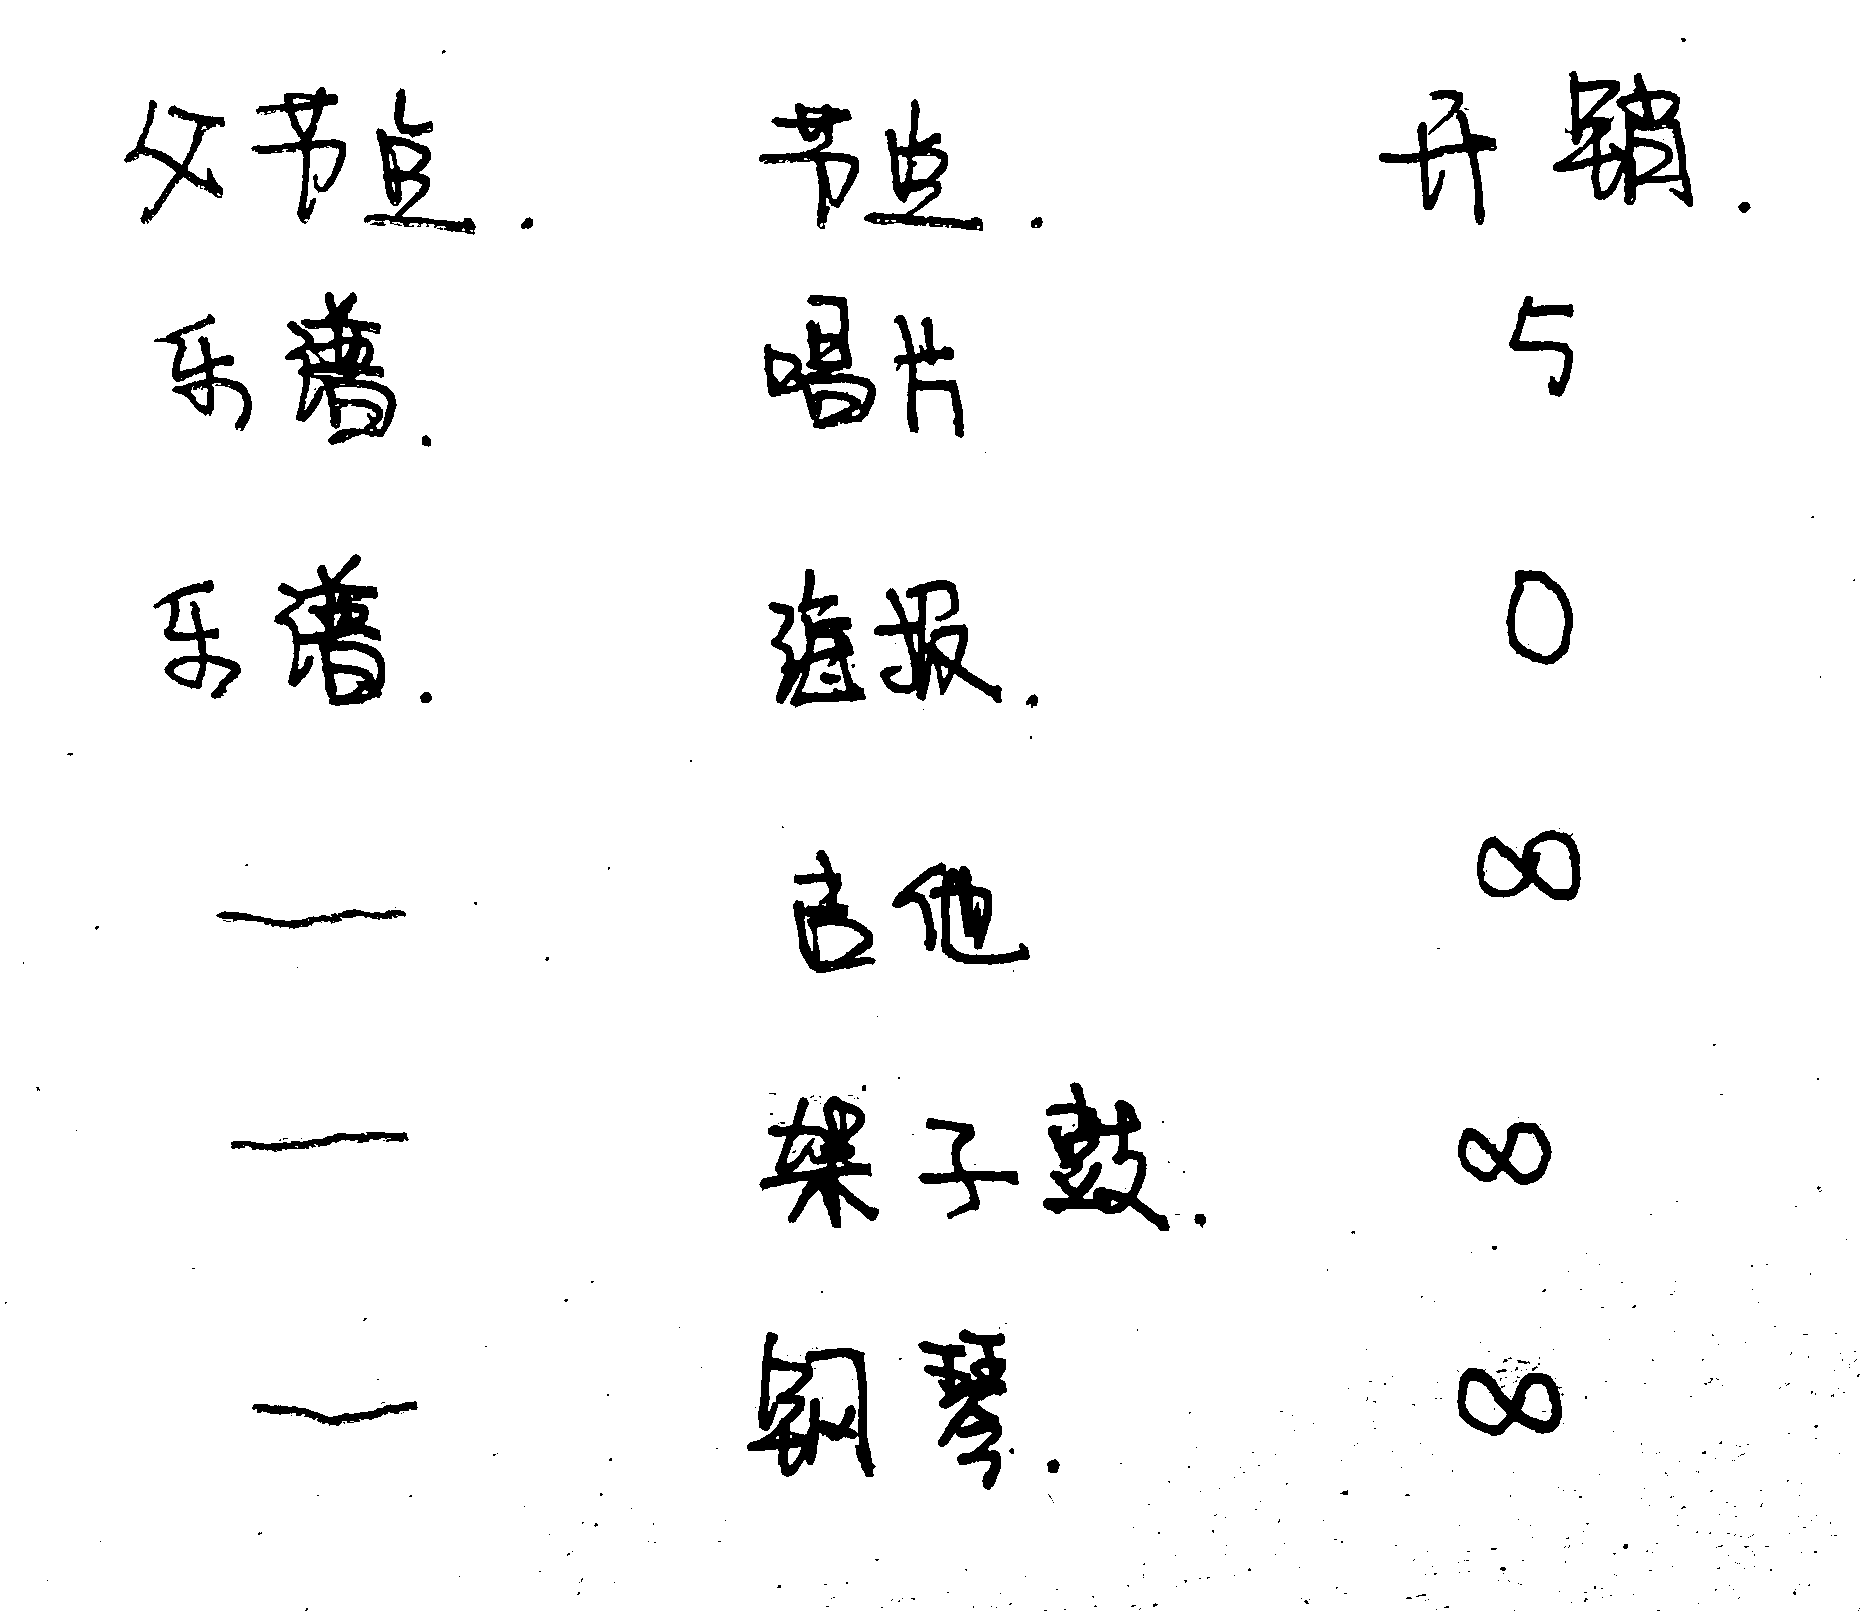 父节点. 节点. 开销.
乐谱. 唱片 5
乐谱. 海报. 0
— 吉他 ∞
— 架子鼓. ∞
— 钢琴. ∞